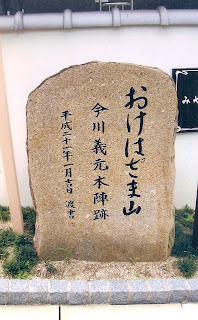 おけはざま山
今川義元本陣跡
平成二十一年一月吉日
みや